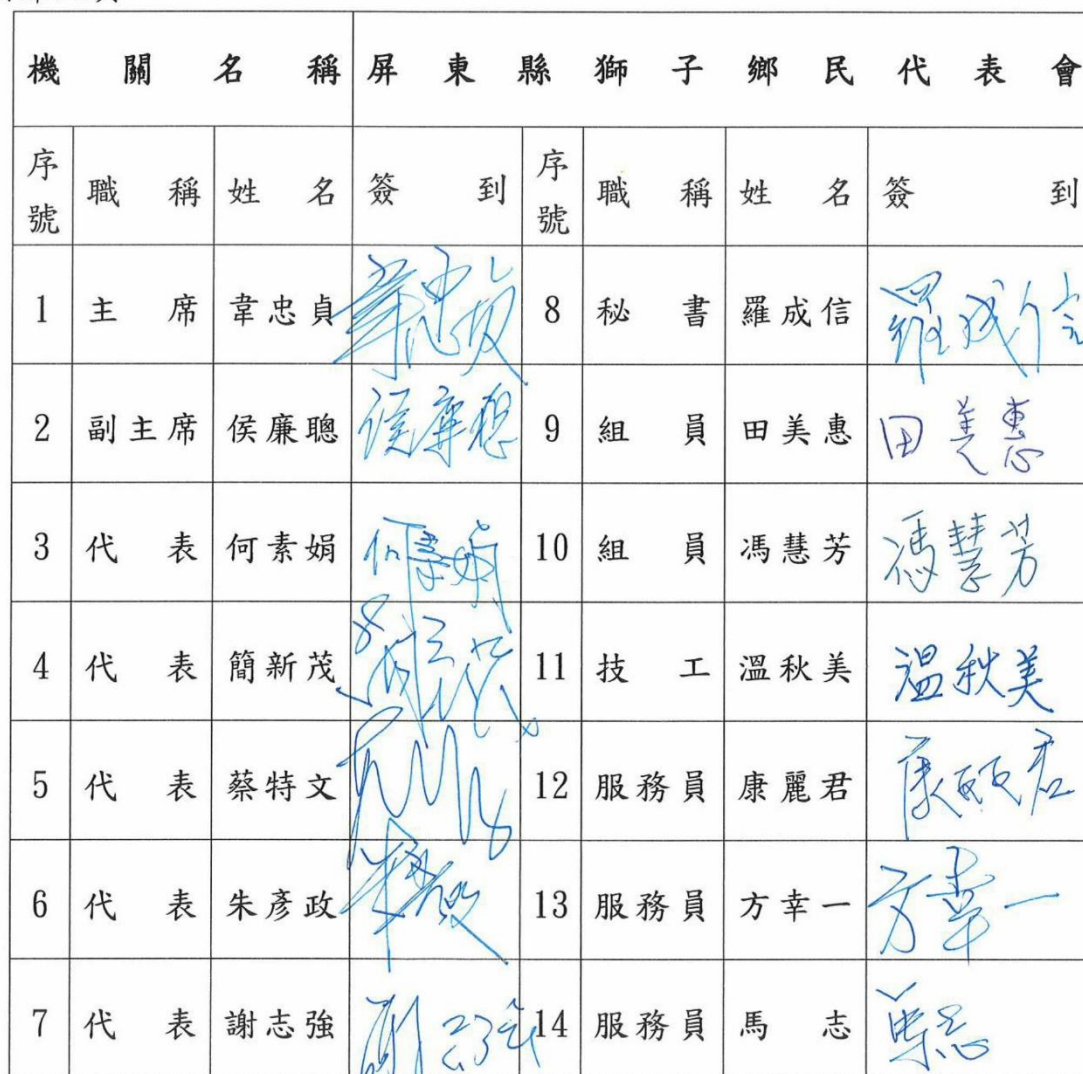 機關名稱 屏東縣獅子鄉民代表會
序號 職稱 姓名 簽到 序號 職稱 姓名 簽到
1 主席 韋忠貞 韋忠貞 8 秘書 羅成信 羅成信
2 副主席 侯廉聰 侯廉聰 9 組員 田美惠 田美惠
3 代表 何素娟 何素娟 10 組員 馮慧芳 馮慧芳
4 代表 簡新茂 11 技工 溫秋美 溫秋美
5 代表 蔡特文 12 服務員 康麗君 康麗君
6 代表 朱彥政 13 服務員 方幸一 方幸一
7 代表 謝志強 14 服務員 馬志 馬志